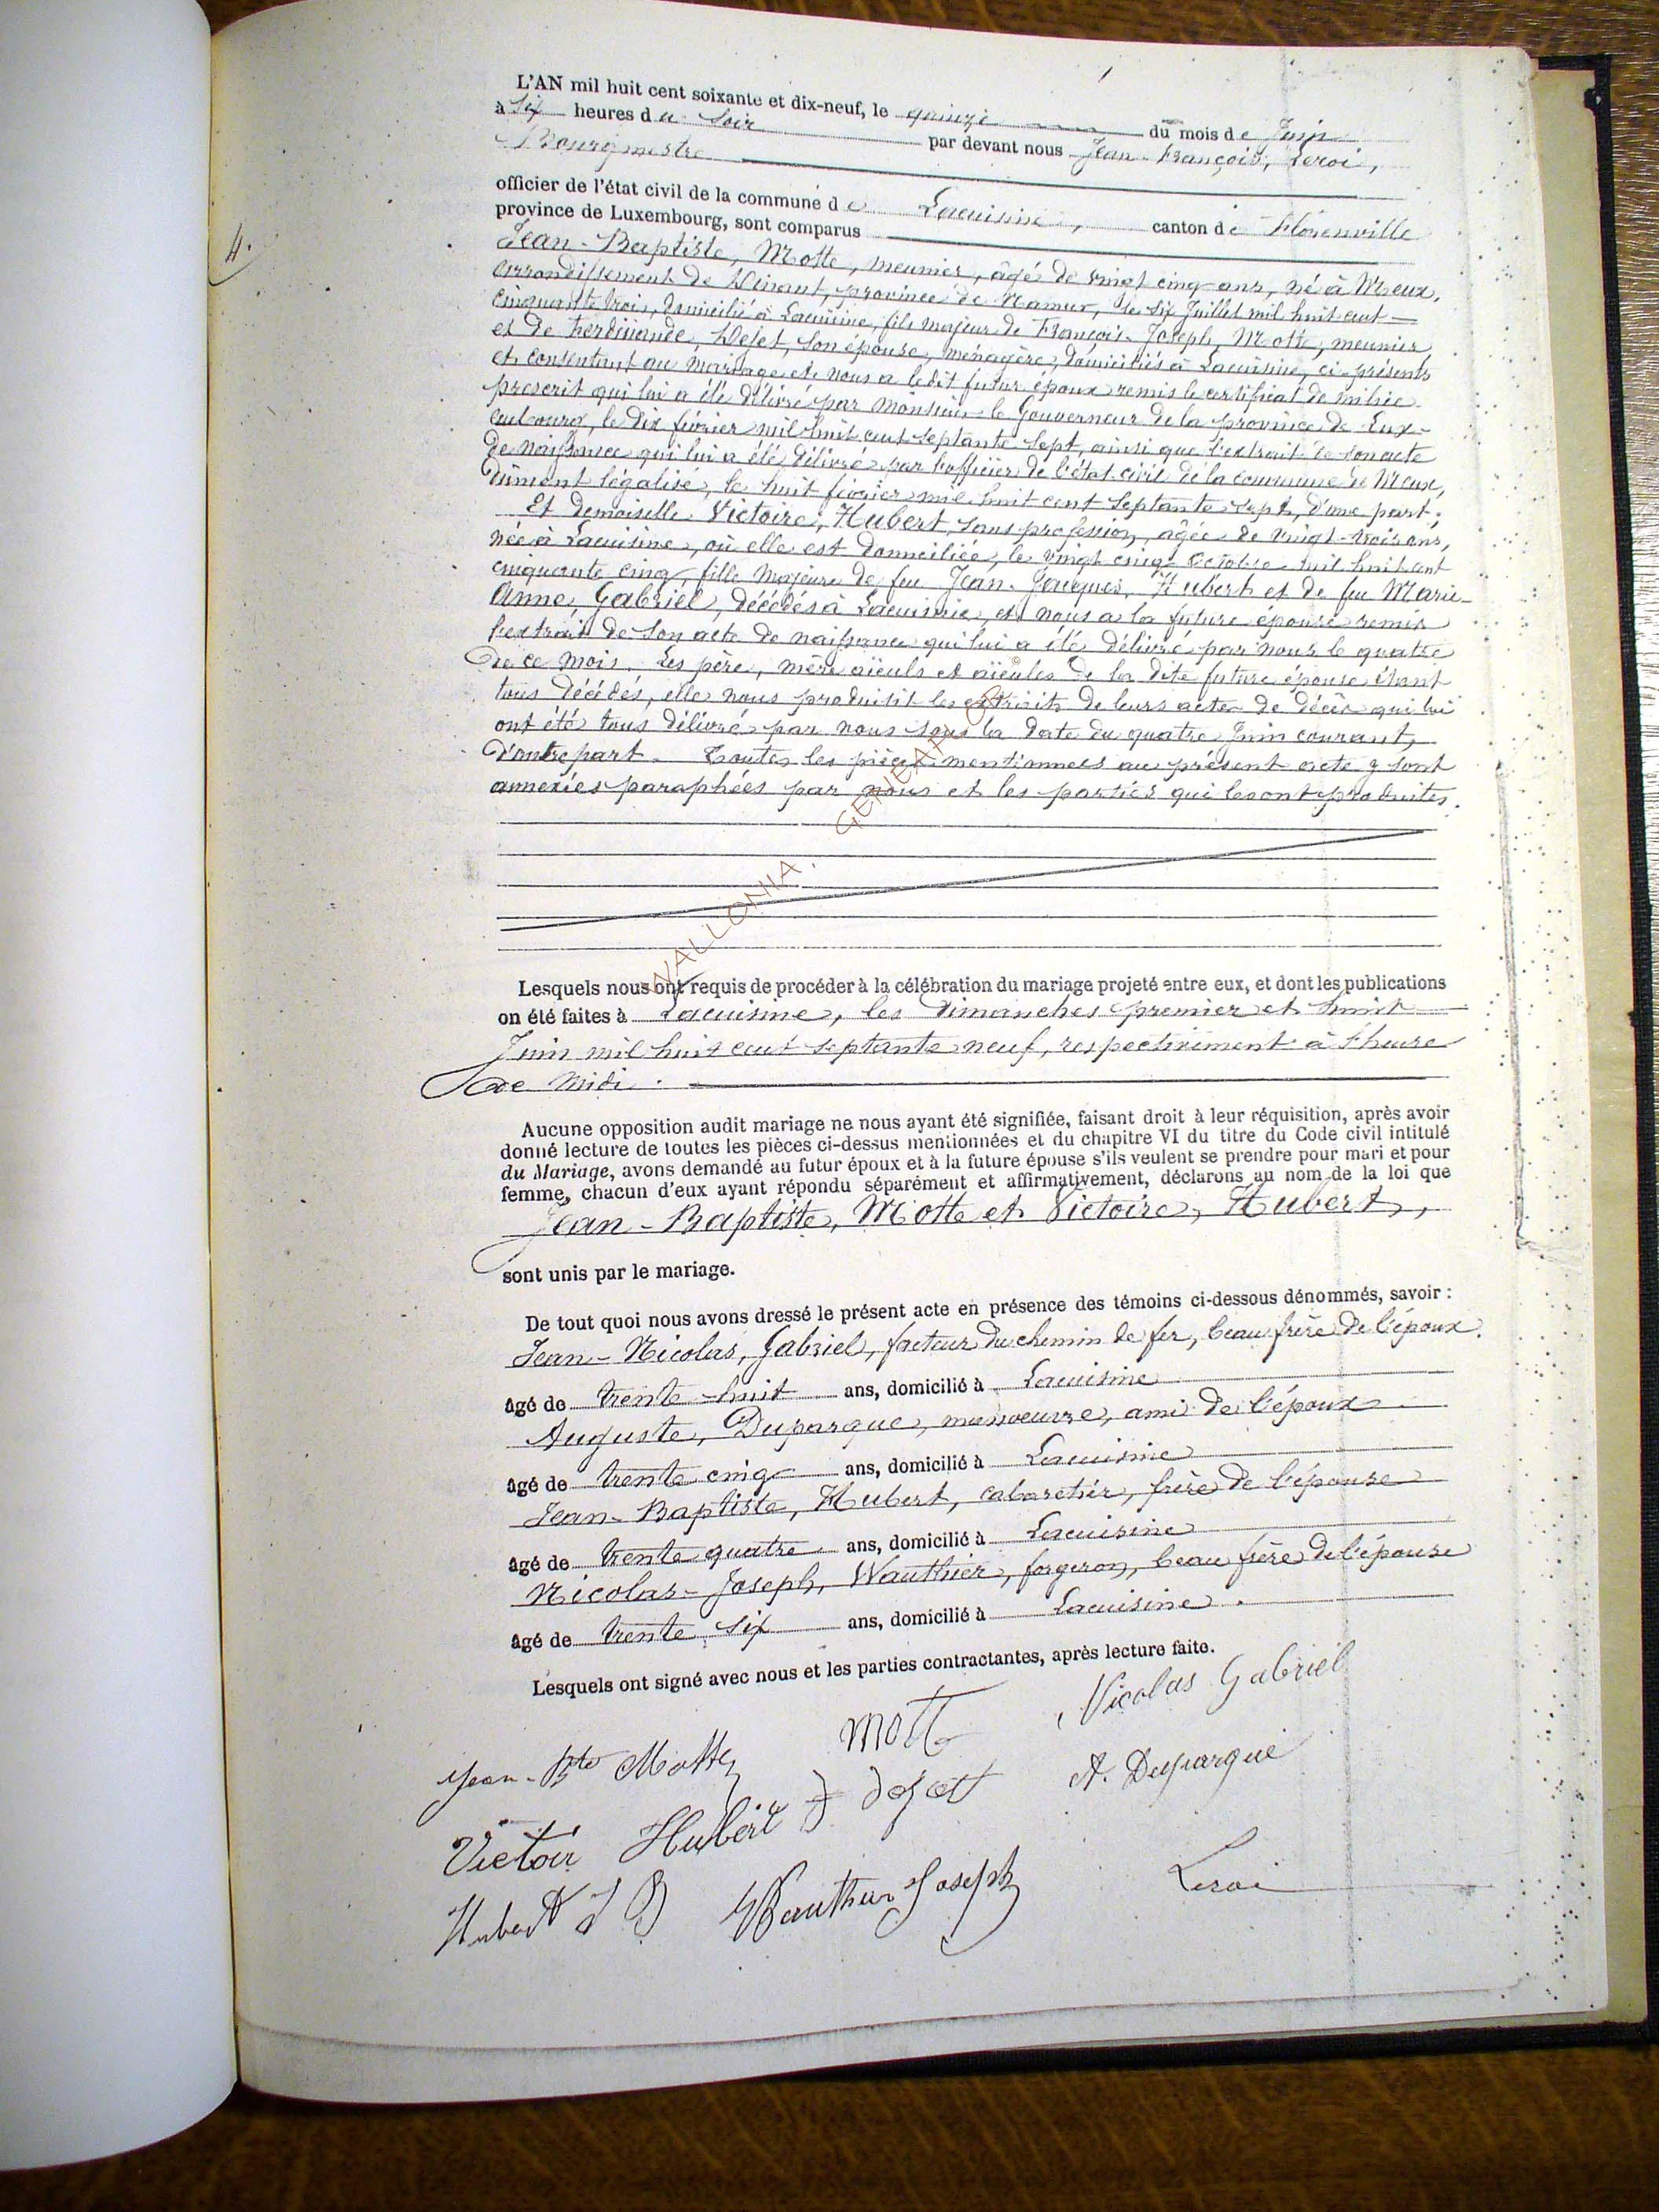 L'AN mil huit cent soixante et dix-neuf, le quinze du mois de Juin
à six heures du soir par devant nous Jean-François, Leroi,
Bourgmestre
officier de l'état civil de la commune de Lacuisine, canton de Florenville
province de Luxembourg, sont comparus
4.
Jean-Baptiste, Motte, meunier, âgé de vingt cinq ans, né à Meux,
arrondissement de Dinant, province de Namur, le six Juillet mil huit cent
cinquante trois, domicilié à Lacuisine, fils majeur de François-Joseph, Motte, meunier
et de Ferdinande, son épouse, ménagère, domiciliés à Lacuisine, ci-présents
et consentant au mariage et nous a ledit futur époux remis le certificat de milice
prescrit qui lui a été délivré par Monsieur le Gouverneur de la province de Lux-
embourg, le dix février mil huit cent septante sept, ainsi que l'extrait de son acte
de naissance qui lui a été délivré par l'officier de l'état civil de la commune de Meux,
dûment légalisé, le huit février mil huit cent septante sept, d'une part;
Et demoiselle Victoire, Hubert, sans profession, âgée de vingt-trois ans,
née à Lacuisine, où elle est domiciliée, le vingt cinq Octobre mil huit cent
cinquante cinq, fille majeure de feu Jean-Jacques, Hubert et de feu Marie-
Anne, Gabriel, décédés à Lacuisine, et nous a la future épouse remis
l'extrait de son acte de naissance qui lui a été délivré par nous le quatre
de ce mois. Les père, mère aïeuls et aïeules de la dite future épouse étant
tous décédés, elle nous produisit les extraits de leurs actes de décès qui lui
ont été tous délivrés par nous sous la date du quatre Juin courant,
d'autre part. Toutes les pièces mentionnées au présent acte y sont
annexées paraphées par nous et les parties qui les ont produites.
WALLONIA. GENEAL
Lesquels nous ont requis de procéder à la célébration du mariage projeté entre eux, et dont les publications
on été faites à Lacuisine, les Dimanches premier et huit
Juin mil huit cent septante neuf, respectivement à l'heure
de Midi.
Aucune opposition audit mariage ne nous ayant été signifiée, faisant droit à leur réquisition, après avoir
donné lecture de toutes les pièces ci-dessus mentionnées et du chapitre VI du titre du Code civil intitulé
du Mariage, avons demandé au futur époux et à la future épouse s'ils veulent se prendre pour mari et pour
femme, chacun d'eux ayant répondu séparément et affirmativement, déclarons au nom de la loi que
Jean-Baptiste, Motte et Victoire, Hubert,
sont unis par le mariage.
De tout quoi nous avons dressé le présent acte en présence des témoins ci-dessous dénommés, savoir :
Jean-Nicolas, Gabriel, facteur du chemin de fer, beau frère de l'époux.
âgé de trente-huit ans, domicilié à Lacuisine
Auguste, Duparque, manoeuvre, ami de l'époux
âgé de trente cinq ans, domicilié à Lacuisine
Jean-Baptiste, Hubert, cabaretier, frère de l'épouse
âgé de trente quatre ans, domicilié à Lacuisine
Nicolas-Joseph, Wauthier, forgeron, beau frère de l'épouse
âgé de trente six ans, domicilié à Lacuisine.
Lesquels ont signé avec nous et les parties contractantes, après lecture faite.
Jean-Bte Motte Mott Nicolas Gabriel
Victoir Hubert A. Duparque
Hubert J B Wauthier Joseph Leroi